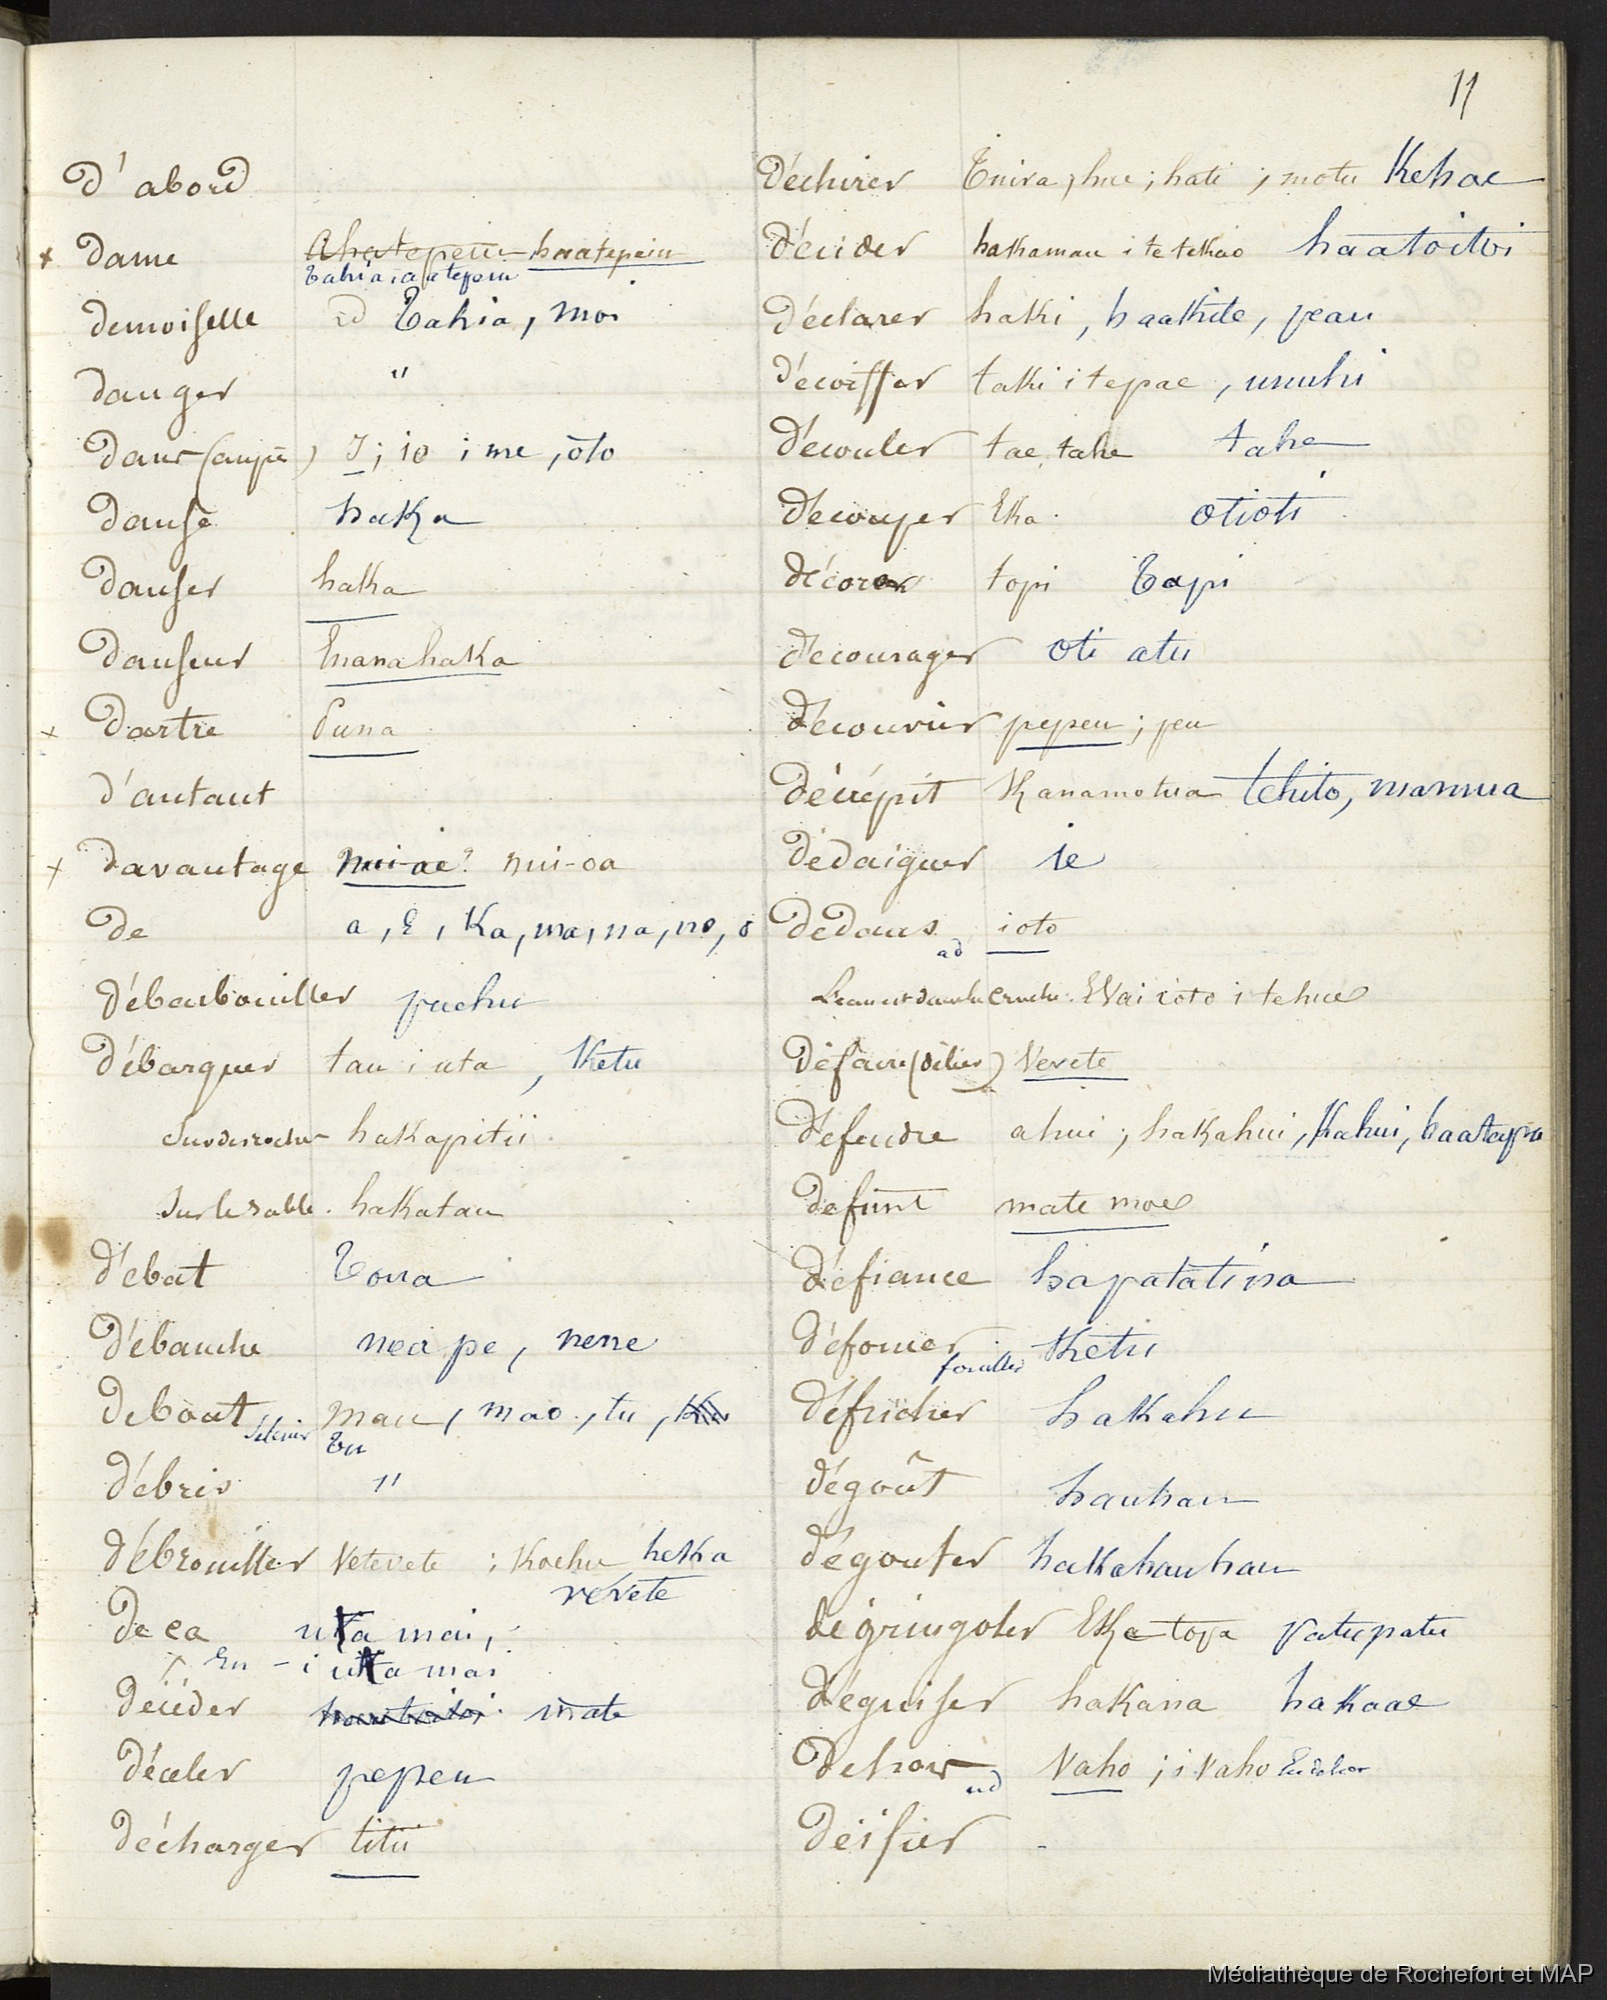 11
d'abord
dame ~~Ahatepeiu~~ haatepeiu
Tahia, a atepeiu
demoiselle id Tahia, moi
danger "
dans (auprè) I; io i me, òto
danse haka
danser haka
danseur Enanahaka
dartre Puna
d'autant
davantage nui-ae? nui-oa
de a, E, Ka, ma, na, no, o
débarbouiller puehu
débarquer tau i uta, Ketu
sur des roches hakapitii
sur le sable. hakatau
débat Toua
débauche nea pe, nene
debout mau, mao, tu,
se tenir Tu
débris "
débrouiller Vetevete ; Koehu heka
vevete
De ca uta mai,
En - i uta mai
décéder mate
déceler pepeu
décharger titii
Déchirer Tuira; hue; hati; motu Kehae
décider hakamau i te tekao haatoitoi
déclarer haki, haakite, peau
décoiffer taki i tepae, unuhi
découler tae, tahe tahe
découper Eka. otioti
décorer topi Tapi
décourager oti atu
découvrir pepeu; peu
décrépit Kanamotua tehito, mamua
dédaigner ie
Dedans ioto
ad
L'eau est dans la cruche. EVai ioto i tehue
Défaire (délier) Vevete
défendre ahui; hakahui, Kahui, haatapu
defunt mate moe
défiance hapatatina
défoncer Ketu
fouiller
défricher hakahu
dégoût hauhau
dégouter hakahauhau
dégringoler Eka topa patupatu
déguiser hakana hakaae
Dehors Vaho; i Vaho En dehor
ad
Déifier -
Médiathèque de Rochefort et MAP